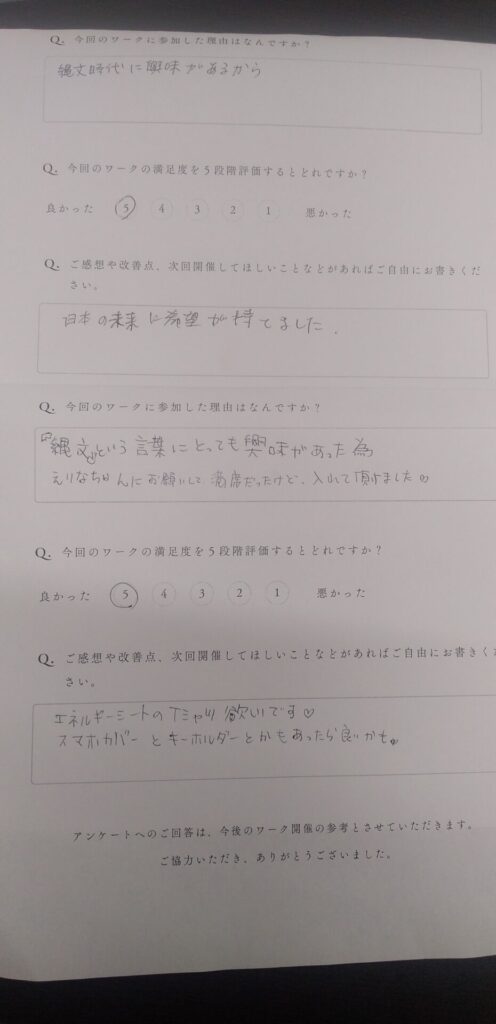 Q. 今回のワークに参加した理由はなんですか？
縄文時代に興味があるから
Q. 今回のワークの満足度を５段階評価するとどれですか？
良かった 5 4 3 2 1 悪かった
Q. ご感想や改善点、次回開催してほしいことなどがあればご自由にお書きくだ
さい。
日本の未来に希望が持てました.
Q. 今回のワークに参加した理由はなんですか？
『縄文』という言葉にとっても興味があった為
えりなちゃんにお願いして、満席だったけど、入れて頂けました♡
Q. 今回のワークの満足度を５段階評価するとどれですか？
良かった 5 4 3 2 1 悪かった
Q. ご感想や改善点、次回開催してほしいことなどがあればご自由にお書きくだ
さい。
エネルギーシートのTシャツ欲いです♡
スマホカバーとキーホルダーとかもあったら良いかも。
アンケートへのご回答は、今後のワーク開催の参考とさせていただきます。
ご協力いただき、ありがとうございました。